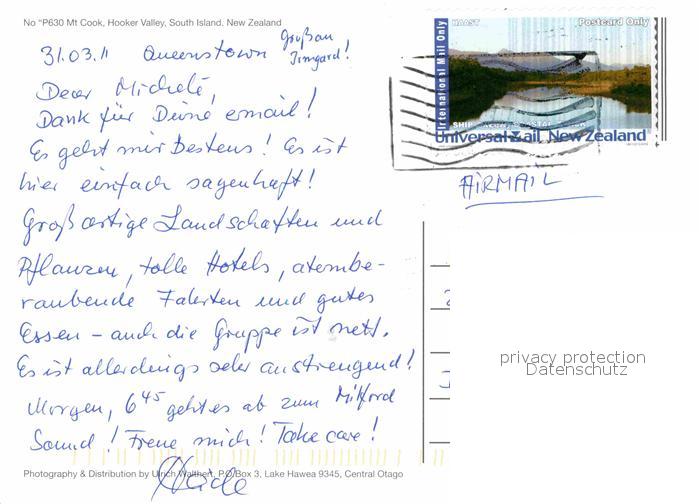 No °P630 Mt Cook, Hooker Valley, South Island, New Zealand
31.03.11 Queenstown Gruß an
Irmgard!
Dear Michele,
Dank für Deine email!
Es geht mir bestens! Es ist
hier einfach sagenhaft!
Großartige Landschaften und
Pflanzen, tolle Hotels, atembe-
raubende Fahrten und gutes
Essen – auch die Gruppe ist nett.
Es ist allerdings sehr anstrengend!
Morgen, 6 45 geht es ab zum Milford
Sound! Freue mich! Take care!
Heide
Photography & Distribution by Ulrich Walthert, P.O.Box 3, Lake Hawea 9345, Central Otago
HAAST
Postcard Only
International Mail Only
Universal Mail New Zealand
AIRMAIL
privacy protection
Datenschutz